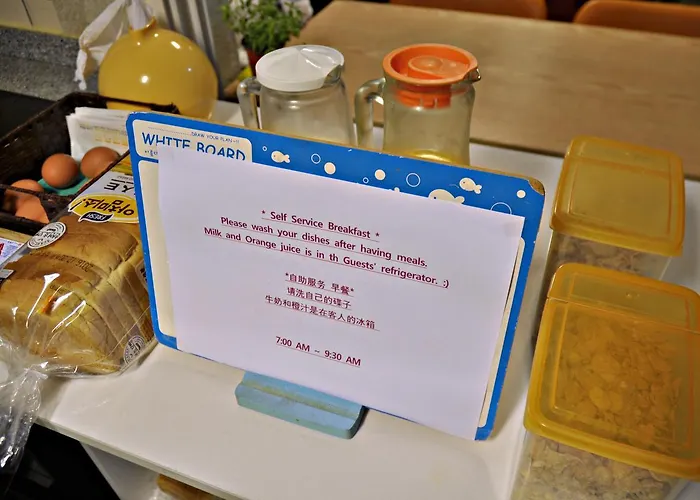 DRAW YOUR PLAN
WHITE BOARD
* Self Service Breakfast *
Please wash your dishes after having meals.
Milk and Orange juice is in th Guests' refrigerator. :)
*自助服务 早餐*
请洗自己的碟子
牛奶和橙汁是在客人的冰箱
7:00 AM ~ 9:30 AM